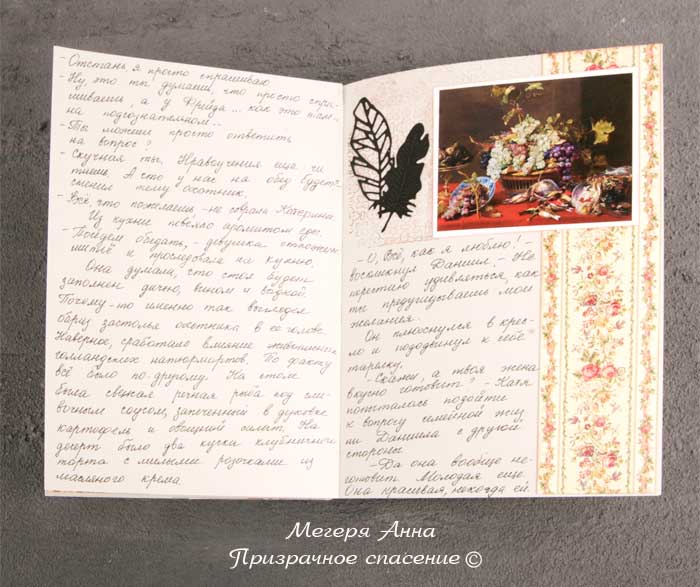 - Отстань, я просто спрашиваю
- Ну, это ты думаеш, что просто спра-
шиваешь, а у Фрейда... как это там...
на подсознательном...
- Ты можешь просто ответить
на вопрос?
- Скучная ты. Нравоучения ещё чи-
тишь. А что у нас на обед будет? -
сменил тему охотник.
- Всё, что пожелаешь - не соврала Катерина
Из кухни повеяло ароматом еды.
- Пойдем обедать, - девушка отложила
шитьё и проследовала на кухню.
Она думала, что стол будет
заполнен дичью, вином и водкой.
Почему-то именно так выглядел
образ застолья охотника в ее голове.
Наверное, сработало влияние живописных
голландских натюрмортов. По факту
всё было по-другому. На столе
была свежая речная рыба под сли-
вочным соусом, запеченный в духовке
картофель и овощной салат. На
десерт было два куска клубничного
торта с милыми розочками из
масляного крема
- О, Всё, как я люблю! -
воскликнул Даниил. - Не
перестаю удивляться, как
ты предугадываешь мои
желания.
Он плюхнулся в крес-
ло и пододвинул к себе
тарелку.
- Скажи, а твоя жена
вкусно готовит? - Катя
попыталась подойти
к вопросу семейной жиз
ни Даниила с другой
стороны.
- Да она вообще не-
готовит. Молодая еще.
Она красивая, некогда ей.
Мегеря Анна
Призрачное спасение ©